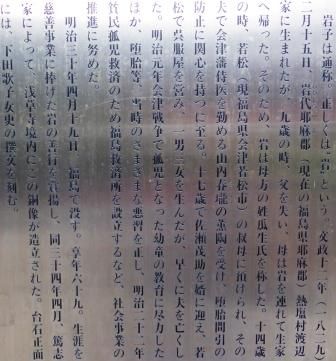 岩子は通称。正しくは“岩”という。文政十二年(一八二九
二月十五日、岩代耶麻郡(現在の福島県耶麻郡)熱塩村渡辺
家に生まれたが、九歳の時、父を失い、母は岩を連れて生家
へ帰った。そのため、岩は母方の姓瓜生氏を称した。十四歳
の時、若松(現福島県会津若松市)の叔母に預けられ、その
夫で会津藩侍医を勤める山内春瓏の薫陶を受け、堕胎間引の
防止に関心を持つに至る。十七歳で佐瀬茂助を婿に迎え、若
松で呉服屋を営み、一男三女を生んだが、早くに夫を亡くし
た。明治元年会津戦争で孤児となった幼童の教育に尽力した
ほか、堕胎等、当時のさまざまな悪習を正し、明治二十二年
貧民孤児救済のため福島救済所を設立するなど、社会事業の
推進に努めた。
明治三十年四月十九日、福島で没す。享年六十九。生涯を
慈善事業に捧げた岩の善行を賞揚し、同三十四年四月、篤志
家によって、浅草寺境内にこの銅像が造立された。台石正面
には、下田歌子女史の撰文を刻む。